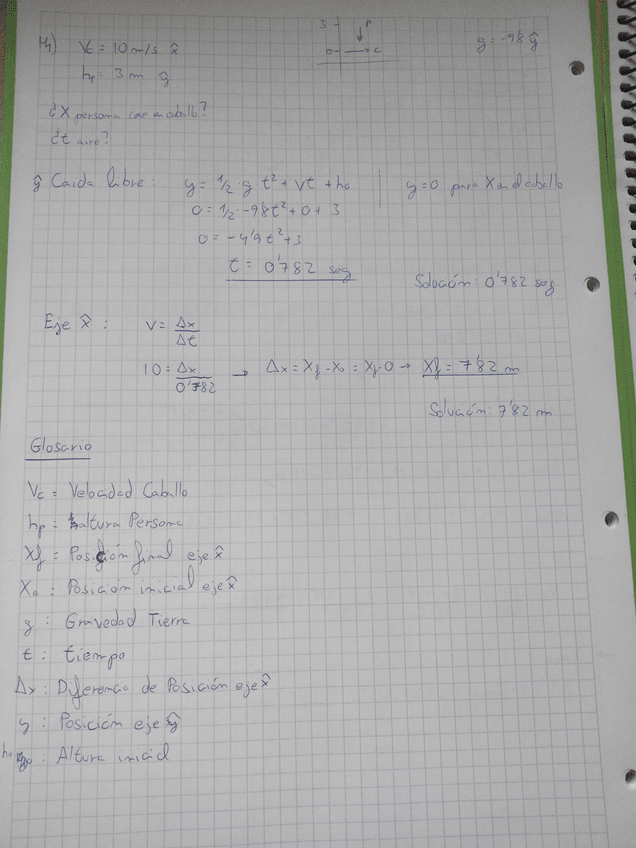 4) Vc = 10 m/s x̂
hp = 3 m ŷ
3
P
0
c
g = -9'8 ŷ
¿X persona cae en caballo?
¿t aire?
ŷ Caída libre: y = 1/2 · g t² + vt + h₀ | y=0 para X en el caballo
0 = 1/2 · -9'8 t² + 0 + 3
0 = -4'9 t² + 3
t = 0'782 seg
Solución: 0'782 seg
Eje x̂: v = Δx/Δt
10 = Δx/0'782 → Δx = Xf - X₀ = Xf - 0 → Xf = 7'82 m
Solución: 7'82 m
Glosario
Vc = Velocidad Caballo
hp = Altura Persona
Xf = Posición final eje x̂
X₀ = Posición inicial eje x̂
g : Gravedad Tierra
t : tiempo
Δx : Diferencia de Posición eje x̂
y : Posición eje ŷ
h₀ : Altura inicial